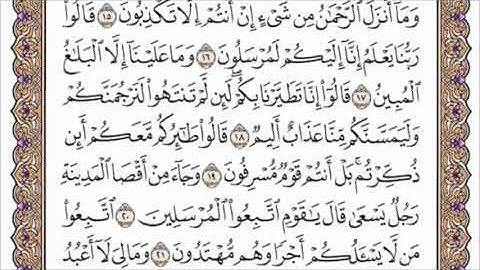 وَمَآ أَنزَلَ ٱلرَّحْمَٰنُ مِن شَىْءٍ إِنْ أَنتُمْ إِلَّا تَكْذِبُونَ ١٥ قَالُوا۟
رَبُّنَا يَعْلَمُ إِنَّآ إِلَيْكُمْ لَمُرْسَلُونَ ١٦ وَمَا عَلَيْنَآ إِلَّا ٱلْبَلَٰغُ
ٱلْمُبِينُ ١٧ قَالُوٓا۟ إِنَّا تَطَيَّرْنَا بِكُمْ ۖ لَئِن لَّمْ تَنتَهُوا۟ لَنَرْجُمَنَّكُمْ
وَلَيَمَسَّنَّكُم مِّنَّا عَذَابٌ أَلِيمٌ ١٨ قَالُوا۟ طَٰٓئِرُكُم مَّعَكُمْ ۚ أَئِن
ذُكِّرْتُم ۚ بَلْ أَنتُمْ قَوْمٌ مُّسْرِفُونَ ١٩ وَجَآءَ مِنْ أَقْصَا ٱلْمَدِينَةِ
رَجُلٌ يَسْعَىٰ قَالَ يَٰقَوْمِ ٱتَّبِعُوا۟ ٱلْمُرْسَلِينَ ٢٠ ٱتَّبِعُوا۟
مَن لَّا يَسْـَٔلُكُمْ أَجْرًا وَهُم مُّهْتَدُونَ ٢١ وَمَا لِىَ لَآ أَعْبُدُ